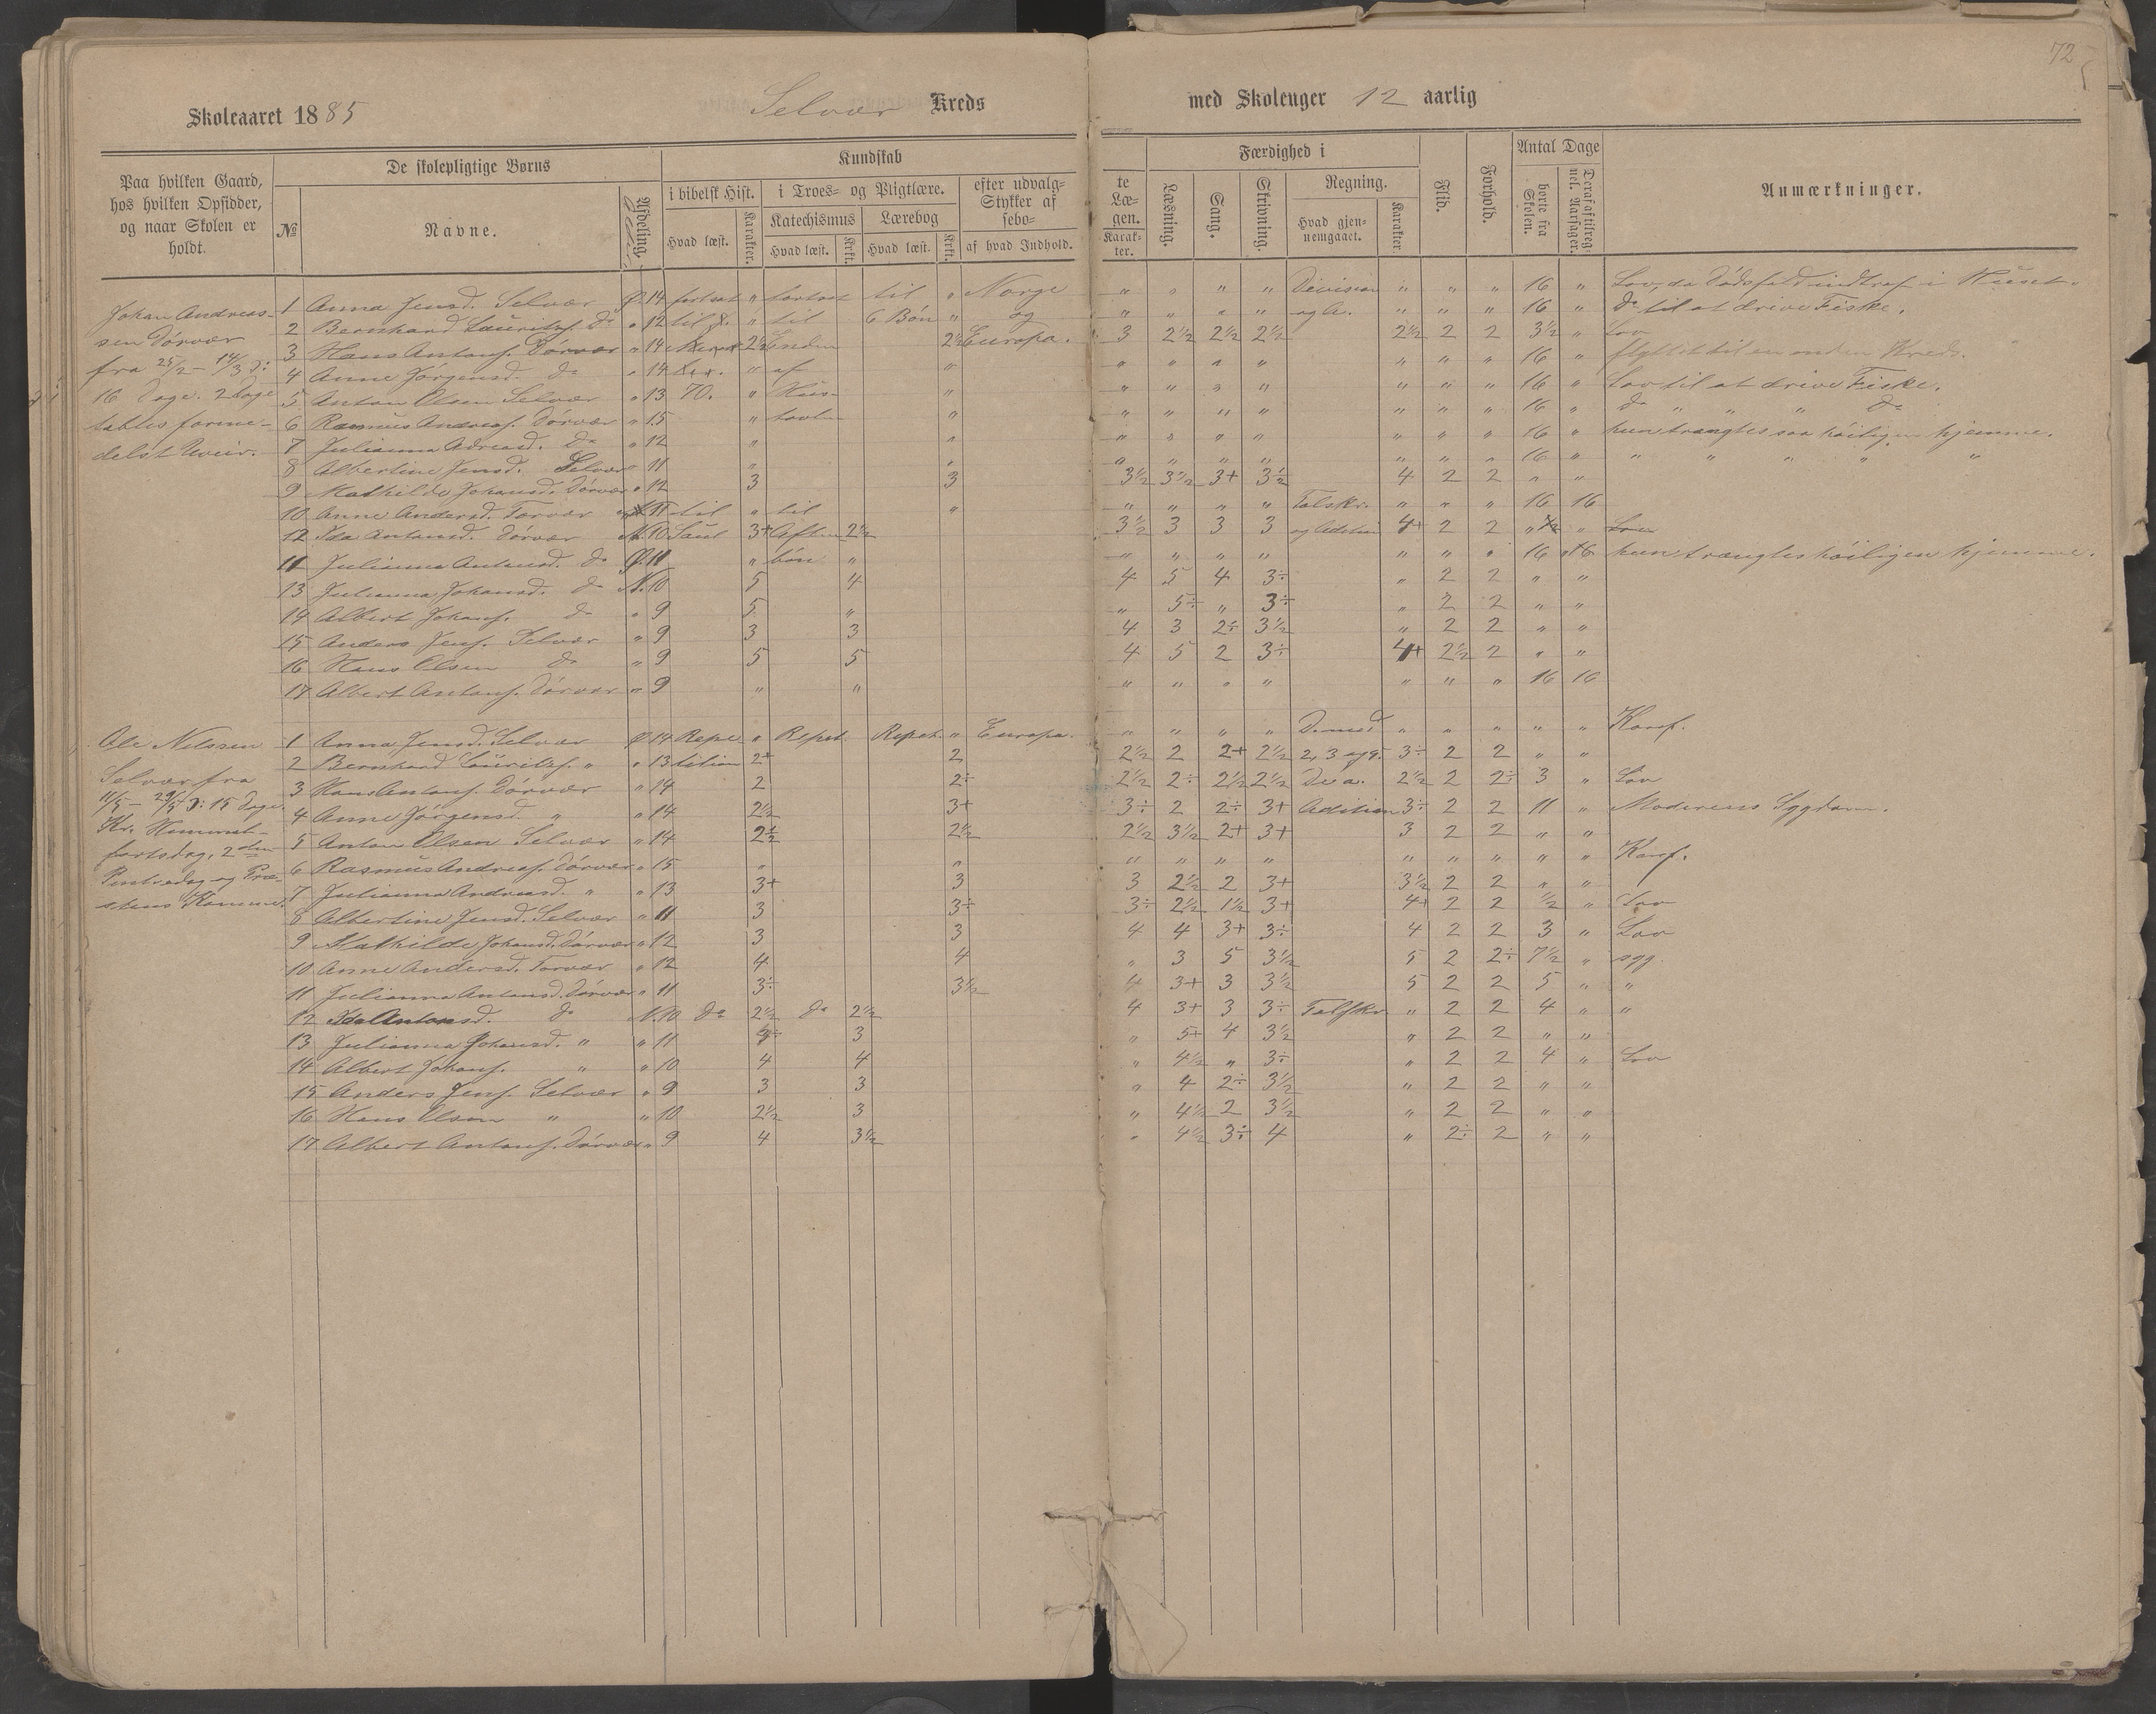 72
Skoleaaret 1885 Selvær Kreds med Skoleuger 12 aarlig
Paa hvilken Gaard, hos hvilken Opsidder, og naar Skolen er holdt.
De skolepligtige Børns
№ Navne. Afdeling.
Kundskab
i bibelsk Hist. Hvad læst. Karakter.
i Troes- og Pligtlære.
Katechismus Hvad læst. Krkt. Lærebog Hvad læst. Krkt.
efter udvalg- Stykker af sebo- af hvad Indhold.
te Læ- gen. Karak- ter.
Færdighed i
Læsning. Sang. Skrivning. Regning. Hvad gjen- nemgaaet. Karakter.
Flid. Forhold.
Antal Dage
borte fra Skolen. Deraf af tilreg- nel. Aarsager.
Anmærkninger.
Johan Andreas-
sen Dørvær
fra 25/2 – 14/3 d:
16 Dage. 2 Dage
tabtes forme-
delst Uveir.
1 Anna Jensd. Selvær Ø. 14 fortsat " fortsat til " Norge " " " " Division " " " 16 " Lov, da Dødsfald indtraf i Huset.
2 Bernhard Lauritzs. do " 12 til " til 6 Bøn " og " " " " og A. " " " 16 " do til at drive Fiske.
3 Hans Antons. Dørvær " 14 2½ Enden 2½ Europa. 3 2½ 2½ 2½ 2½ 2 2 3½ " Lov
4 Anne Jørgensd. do " 14 " af " " " " " " " " 16 " flyttet til en anden Kreds.
5 Anton Olsen Selvær " 13 70. " Hus- " " " " " " " " 16 " Lov til at drive Fiske.
6 Rasmus Andreas. Dørvær " 15 " tavlen " " " " " " " " 16 " do " " " do
7 Julianna Adreasd. do " 12 " " " " " " " " " 16 " hun trængtes saa høiligen hjemme.
8 Albertine Jensd. Selvær " 11 " " " " " " " " " 16 " " " " " "
9 Mathilde Johansd. Dørvær " 12 3 3 3½ 3½ 3+ 3½ 4 2 2 " "
10 Anne Andersd. Torvær " 11 til " til " " " " " Talskr. " " " 16 16
12 Ida Antonsd. Dørvær N. 10 Saul 3+ Aften 2½ 3½ 3 3 3 og Adition 4+ 2 2 " "
11 Julianna Antonsd. do Ø. 11 " bøn " " " " " " " " 16 16 hun trængtes høiligen hjemme.
13 Julianna Johansd. do N. 10 5 4 4 5 4 3÷ " 2 2 " "
14 Albert Johans. do " 9 5 " " 5÷ " 3÷ " 2 2 " "
15 Anders Jens. Selvær " 9 3 3 4 3 2÷ 3½ " 2 2 " "
16 Hans Olsen do " 9 5 5 4 5 2 3÷ 4+ 2½ 2 " "
17 Albert Antons. Dørvær " 9 " " " " " " " " " 16 16
Ole Nilssen
Selvær fra
11/5 – 29/5 d: 15 Dage.
Kr. Himmel-
fartsdag, 2den
Pintsedag og Præ-
stens Komme.
1 Anna Jensd. Selvær Ø. 14 Repe- " Repet. Repet. " Europa. " " " " D. med " " " " " Konf.
2 Bernhard Lauritzs. " " 13 tition 2+ 2 2½ 2 2+ 2½ 2, 3 og 9. 3÷ 2 2 " "
3 Hans Antons. Dørvær " 14 2 2÷ 2½ 2÷ 2½ 2½ 2½ 2 2÷ 3 " Lov
4 Anne Jørgensd. " " 14 2½ 3+ 3÷ 2 2÷ 3+ Adition 3÷ 2 2 11 " Moderens Sygdom.
5 Anton Olsen Selvær " 14 2½ 2½ 2½ 3½ 2+ 3+ 3 2 2 " "
6 Rasmus Andreas. Dørvær " 15 " " " " " " " " " " " Konf.
7 Julianna Andreasd. " " 13 3+ 3 3 2½ 2 3+ 3½ 2 2 " "
8 Albertine Jensd. Selvær " 11 3 3÷ 3÷ 2½ 1½ 3+ 4+ 2 2 ½ " Lov
9 Mathilde Johansd. Dørvær " 12 3 3 4 4 3+ 3÷ 4 2 2 3 " Lov
10 Anne Andersd. Torvær " 12 4 4 " 3 5 3½ 5 2 2÷ 7½ " syg.
11 Julianna Antonsd. Dørvær " 11 3÷ 3½ 4 3+ 3 3½ 5 2 2 5 " "
12 Ida Antonsd. do N. 10 do 2½ do 2½ 4 3+ 3 3÷ Talskr. " 2 2 4 " "
13 Julianna Johansd. " " 11 3 " 5+ 4 3½ " 2 2 " "
14 Albert Johans. " " 10 4 4 " 4½ " 3÷ " 2 2 4 " Lov
15 Anders Jens. Selvær " 9 3 3 " 4 2÷ 3½ " 2 2 " "
16 Hans Olsen " " 10 2½ 3 " 4½ 2 3½ " 2 2 " "
17 Albert Antons. Dørvær " 9 4 3½ " 4½ 3÷ 4 " 2÷ 2 " "